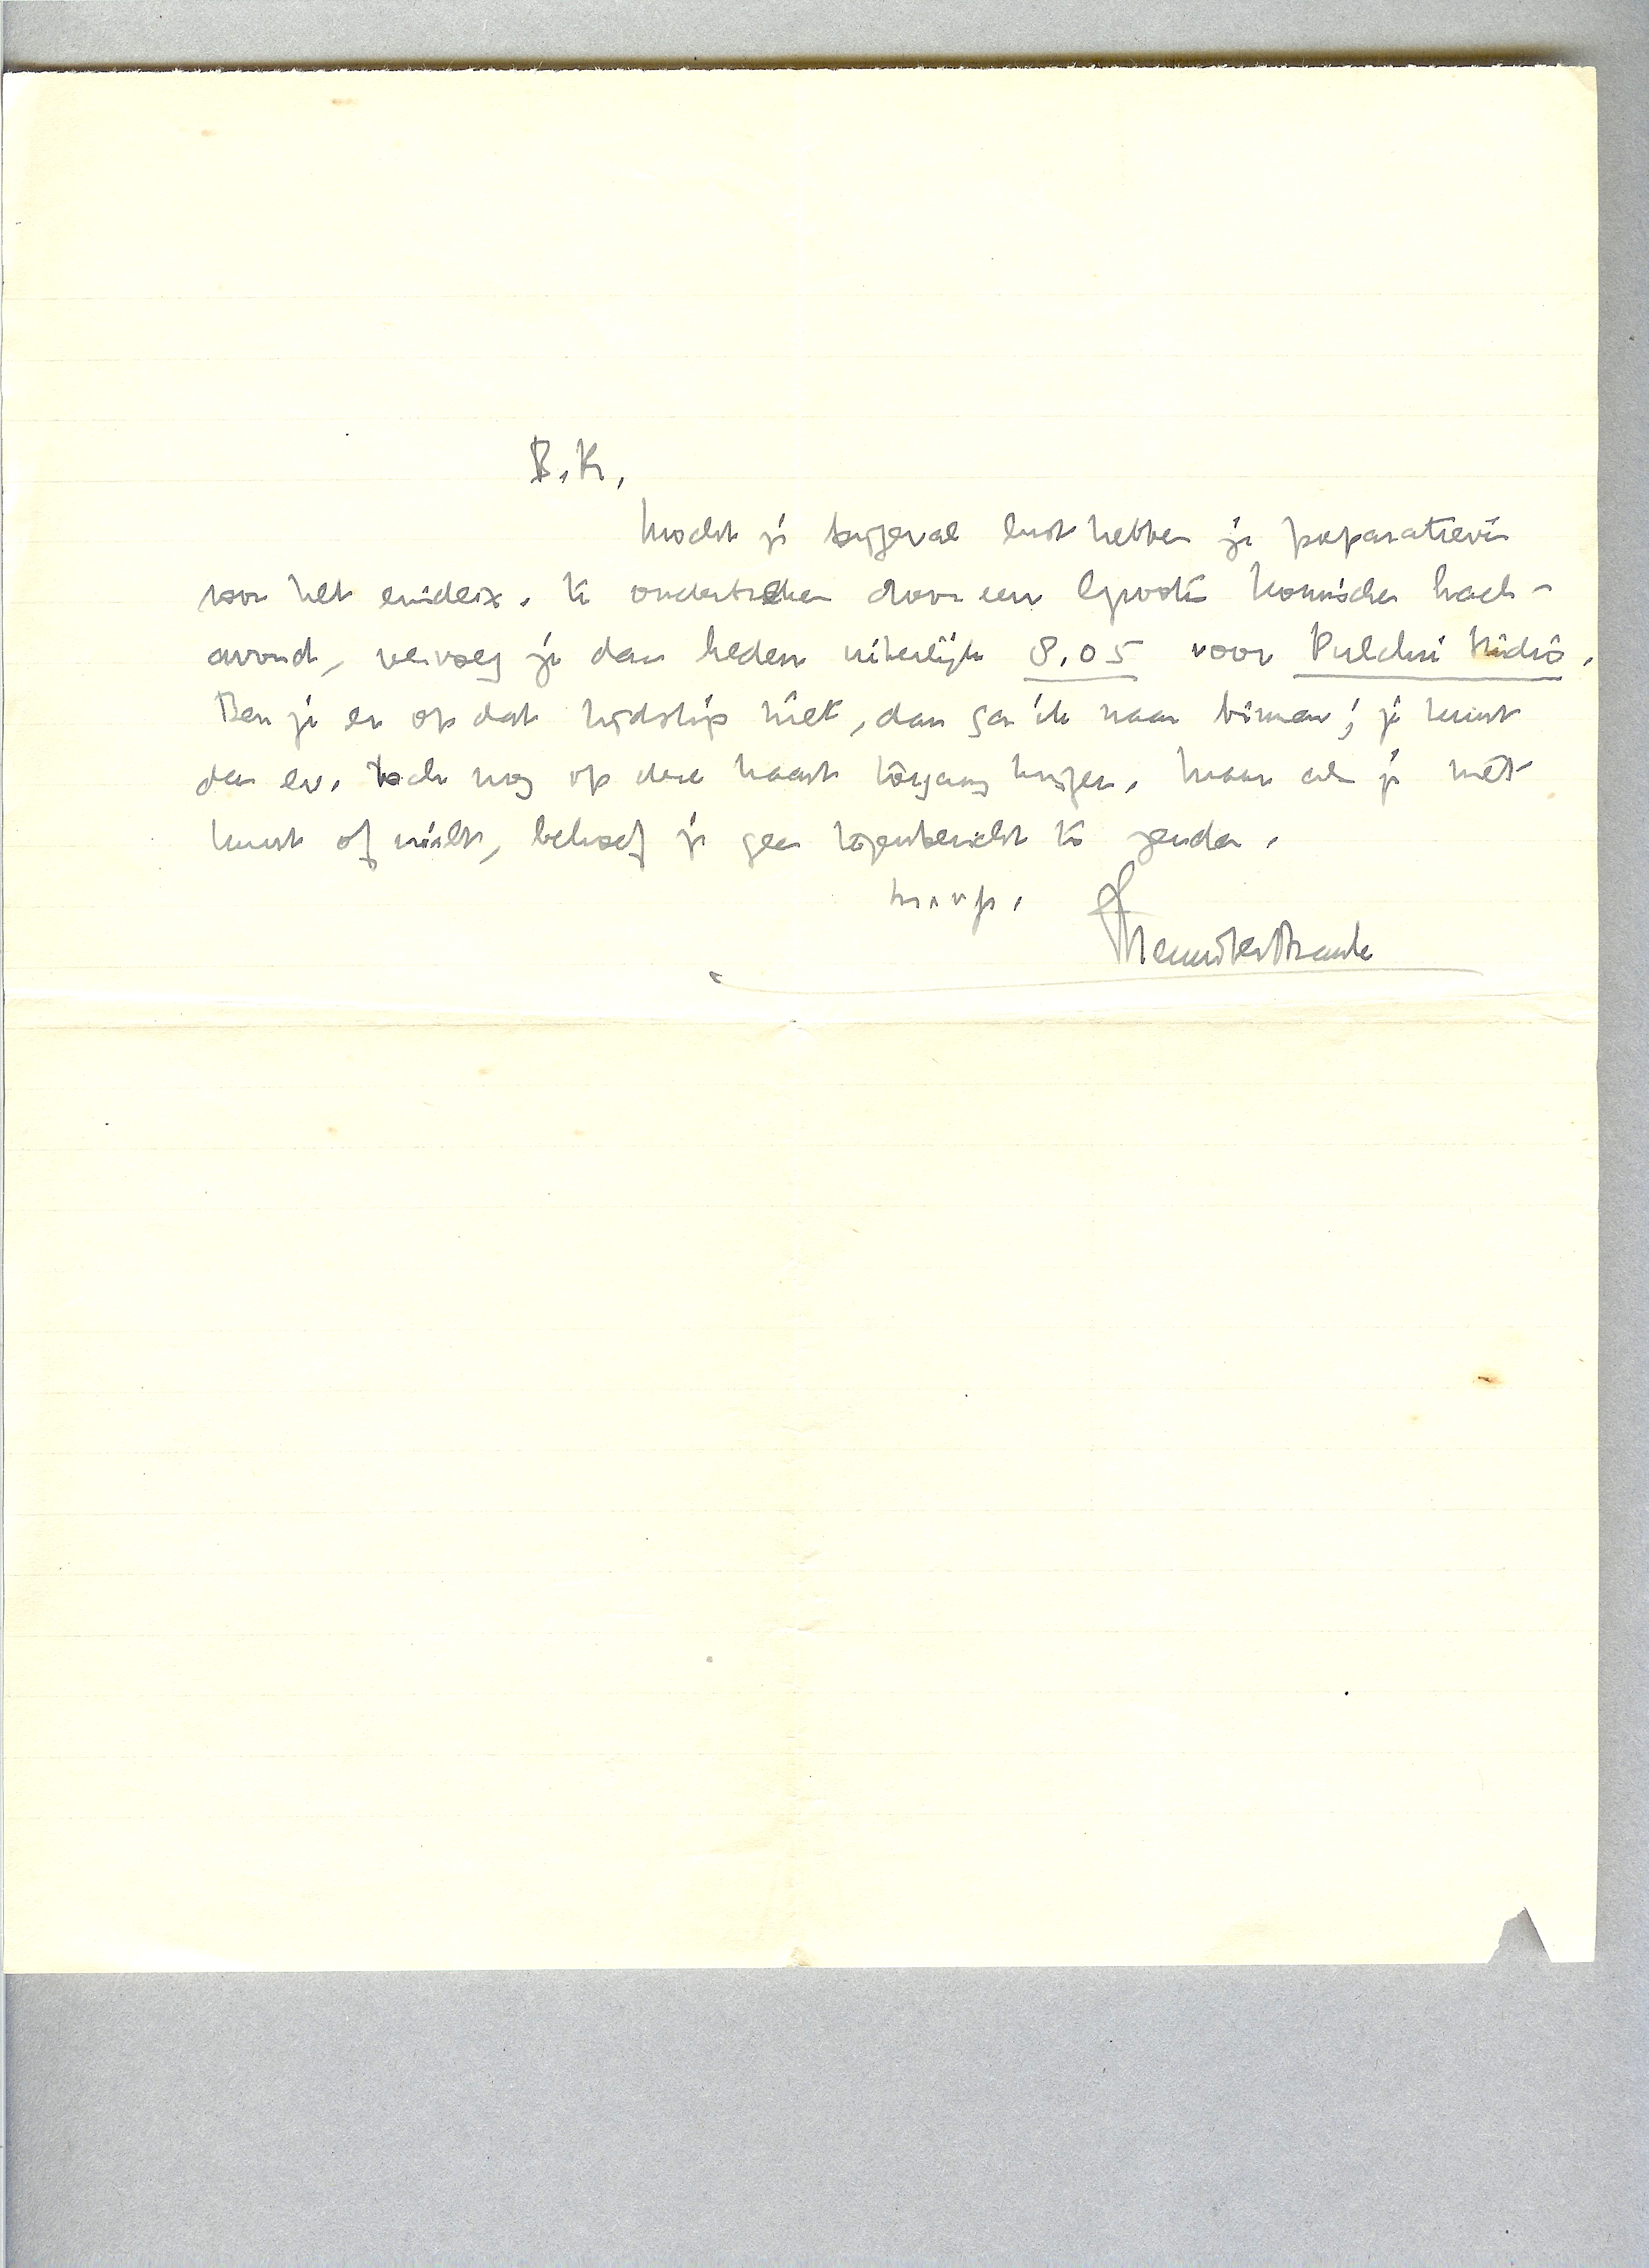 B.K.,
Mocht je bijgeval lust hebben je preparatieven
voor het eindex. te onderbreken door een groote komische
avond, vervoeg je dan heden uiterlijk 8.05 voor Pulchri Studio.
Ben je er op dat tijdstip niet, dan ga ik naar binnen; je kunt
dan ev. toch nog op deze kaart toegang krijgen. Maar als je niet
kunt of wilt, behoef je geen tegenbericht te zenden.
m.v.gr.